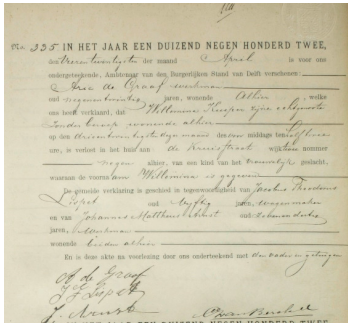 No. 335 IN HET JAAR EEN DUIZEND NEGEN HONDERD TWEE,
den vierentwintigsten der maand April is voor ons
ondergeteekende, Ambtenaar van den Burgerlijken Stand van Delft verschenen:
Arie de Graaf werkman
oud negenentwintig jaren, wonende Alhier, welke
ons heeft verklaard, dat Willemina Kuiper zijne echtgenoote
zonder beroep wonende alhier
op den drieentwintigsten dezer des middags ten elf
ure, is verlost in het huis aan de straat wijk nummer
negen alhier, van een kind van het vrouwelijk geslacht,
waaraan de voornaam Willemina is gegeven
De gemelde verklaring is geschied in tegenwoordigheid van Jacobus Theodorus
Lispet oud vijftig jaren, wagenmaker
en van Johannes Mattheus Arnst oud
jaren, werkman
wonende beiden alhier
En is deze akte na voorlezing door ons onderteekend met den vader en getuigen
A de Graaf
Lispet
J. Arnst
HET JAAR EEN DUIZEND NEGEN HONDERD TWEE